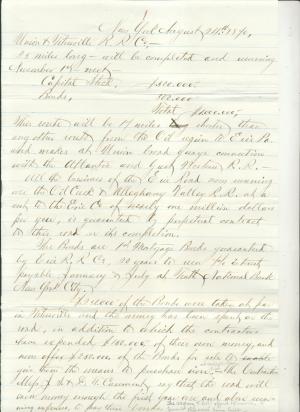 New York August 24th 1870,
Union & Titusville R R Co,-
25 miles long - will be completed and running
November 1st next -
Capital Stock, $500.000-
Bonds, 500.000
Total $1,000.000-
This route will be 17 miles shorter than
any other route from the Oil region to Erie Pa.
and makes at Union broad guage connection
with the Atlantic and Great Western R.R. -
All the business of the Erie Road now running
over the Oil Creek & Alleghany Valley R.R. which is
only to the Erie Co of nearly one million dollars
per year, is guaranteed by perpetual contract
to this road on its completion.
The Bonds are 1st Mortgage Bonds guaranteed
by Erie R.R. Co, 20 years to run 7% interest
payable January & July at Tenth National Bank
New York City,
of the Bonds were taken at par
in Titusville and the money has been spent on the
road, in addition to which the contractors
have expended $100,000 of their own money, and
now offer $250.000 of the Bonds for sale to enable
give them the means to purchase iron - The Contractors
Messrs J. S. & D. T. Casement, say that the road will
earn money enough the first year over and above run-
ning expenses to pay these Bonds